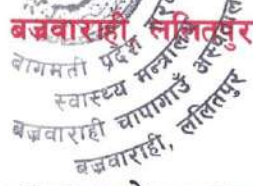 बज्रवाराही ललितपुर
बागमती प्रदेश
स्वास्थ्य मन्त्रालय
बज्रवाराही चापागाउँ अस्पताल
बज्रवाराही, ललितपुर